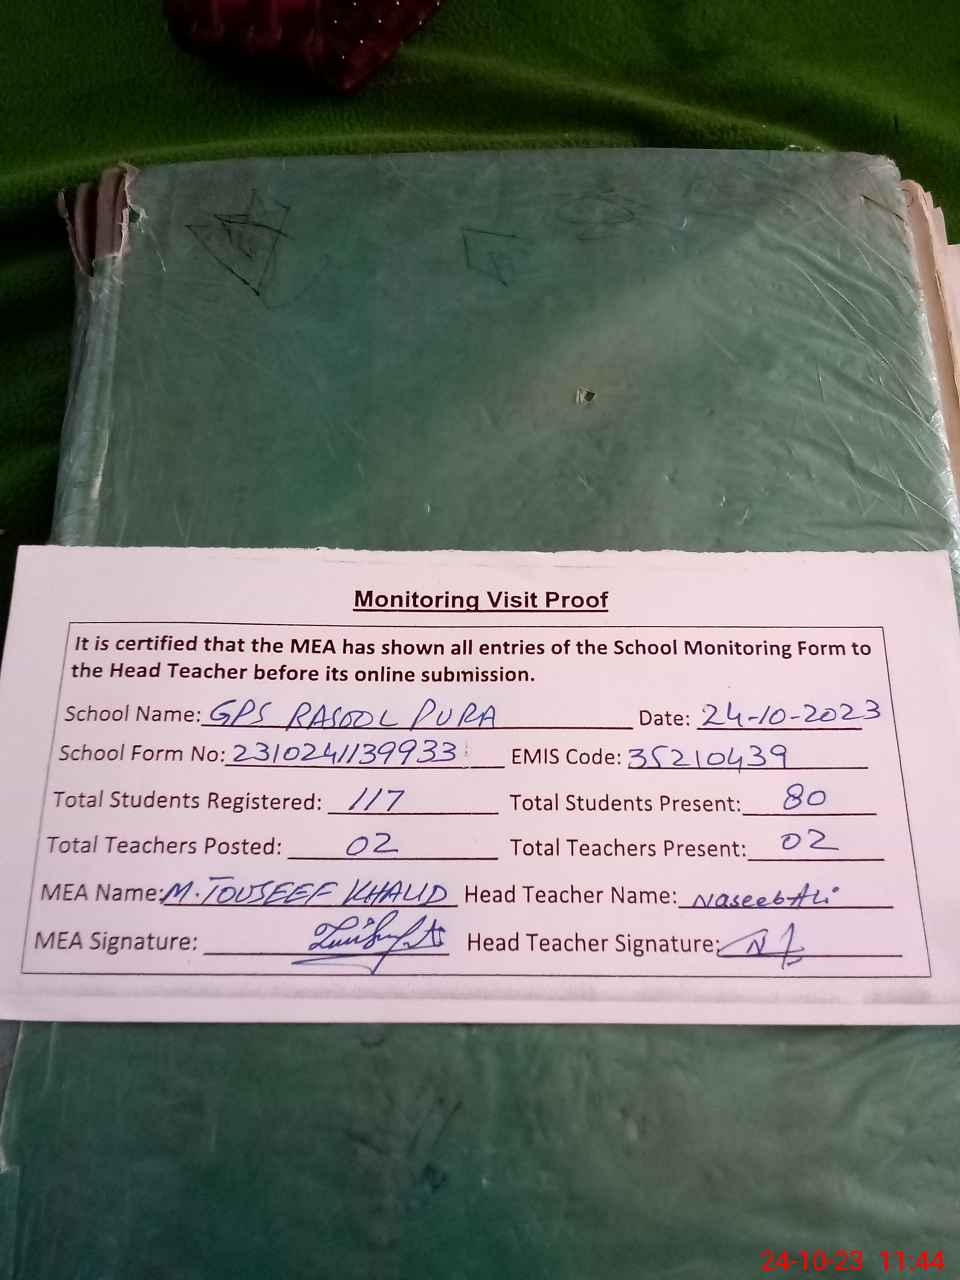 Monitoring Visit Proof
It is certified that the MEA has shown all entries of the School Monitoring Form to
the Head Teacher before its online submission.
School Name: GPS RASOOL PURA Date: 24-10-2023
School Form No: 2310241139933 EMIS Code: 35210439
Total Students Registered: 117 Total Students Present: 80
Total Teachers Posted: 02 Total Teachers Present: 02
MEA Name: M. TOUSEEF KHALID Head Teacher Name: Naseeb Ali
MEA Signature: Head Teacher Signature:
24-10-23 11:44